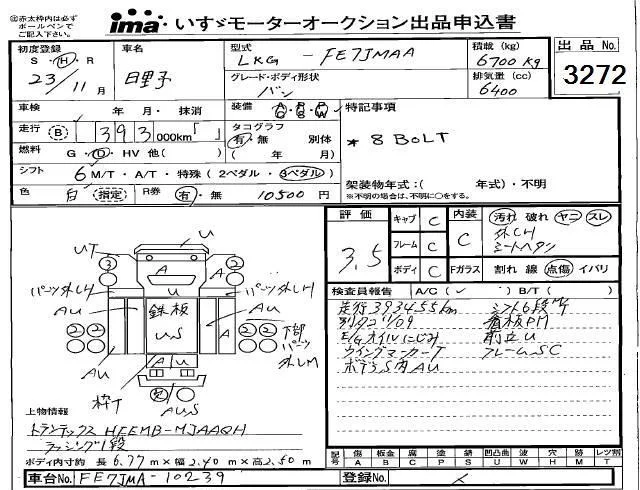 赤太枠内は必ず
ボールペンで
ご記入下さい。
ima・いすゞモーターオークション出品申込書
初度登録 S・H・R 23/11月
車名 日里予
型式 LKG - FE7JMAA
グレード・ボディ形状 バン
積載(kg) 6700kg
排気量(cc) 6400
出品No. 3272
車検 年・月・抹消
装備 A・R・P C S W
特記事項
走行 B 393000km「」
タコグラフ 有・無 別体 (年月)
* 8 BOLT
燃料 G・D・HV 他( )
シフト 6M/T・A/T・特殊(2ペダル・3ペダル)
架装物年式:( 年式)・不明
※不明の場合は、不明に○をする。
色 白 (指定) R券 有・無 10500円
評価 3.5
キャブ C
フレーム C
ボディ C
内装 C
汚れ 破れ ヤニ スレ
外CH
シートヘタン
Fガラス 割れ 線 点傷 イバリ
検査員報告 A/C( ✓ ) B/T( )
走行393455km シフト6段M/T
別タコ'11/09 看板PM
E/Gオイルにじみ 前立U
ウイングマーカーT フレームSC
ボデーS内AU
U
UT
3
2
A
パーツ外しH
U
パーツ外しH
AU
AU
鉄板
US
A
2 2
2 2
下部
パーツ
外しM
AU
A U
枠T
AUS
上物情報
トランテックス HFEMB-MJAAQH
ラッシング1段
ボディ内寸約 長6.77m×幅2.40m×高2.50m
記号 傷A 板金B 腐C 塗P 錆S 凹凸曲U 波W 穴H 跡M レツ割T
車台No. FE7JMA-10239
登録No.